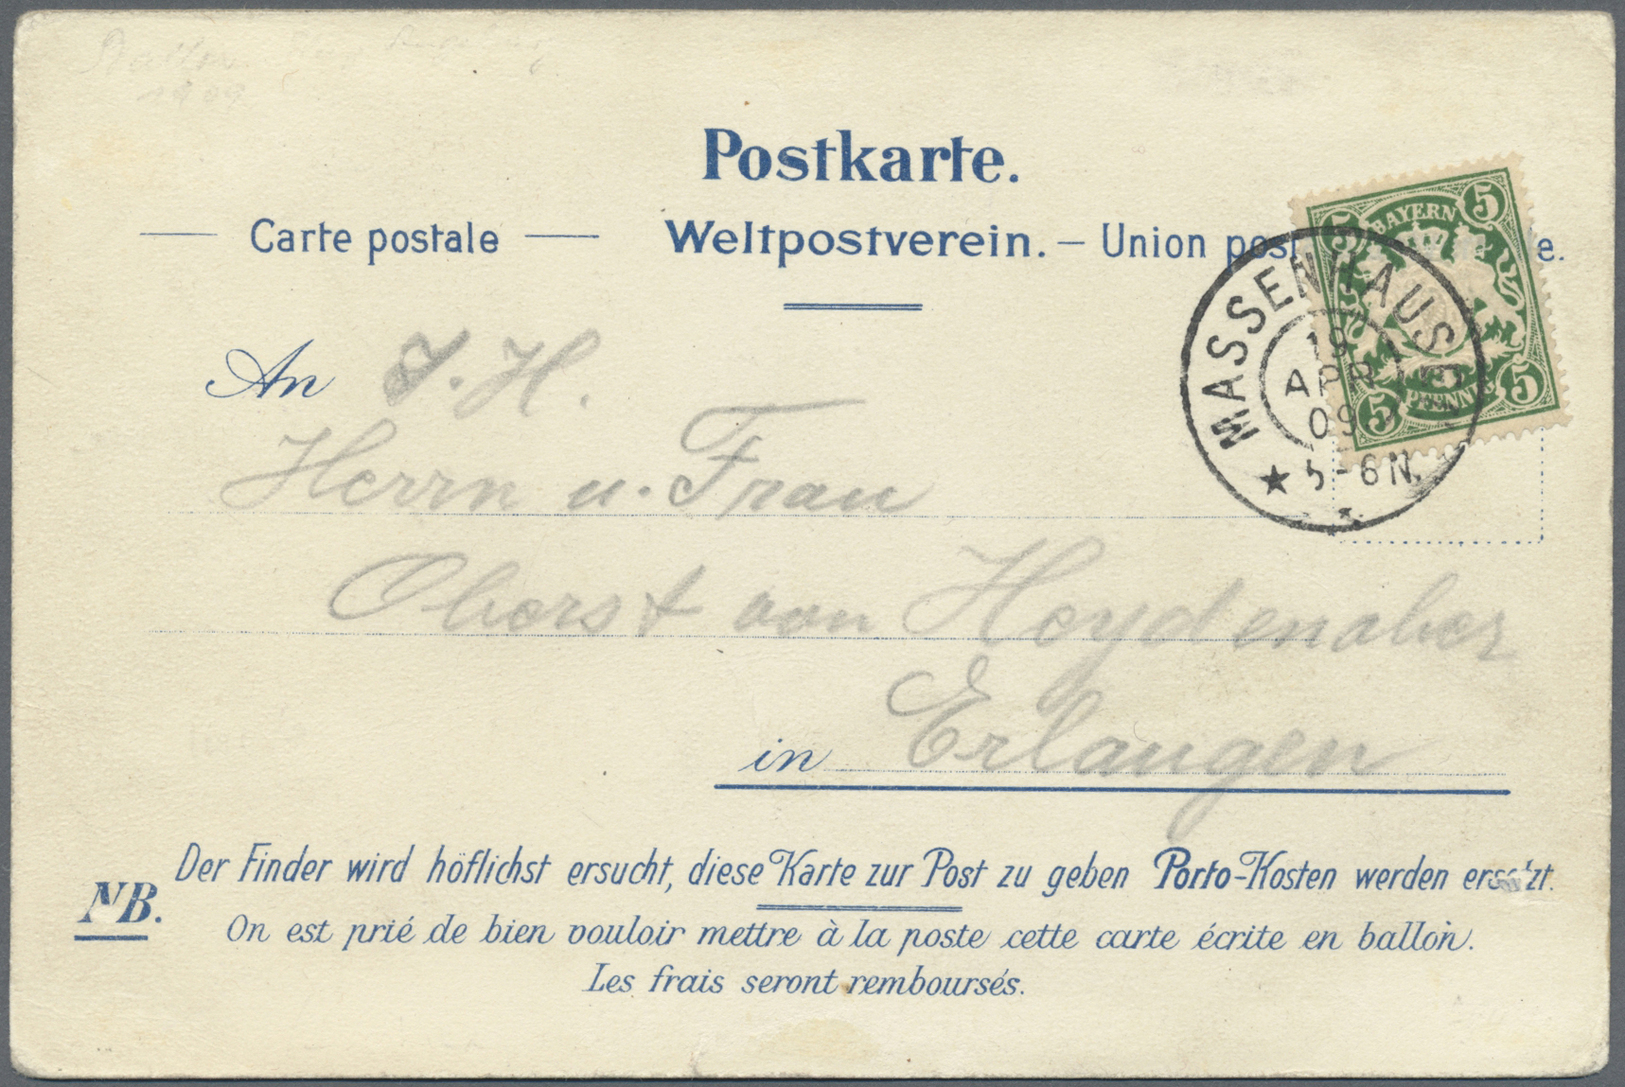 1909
Postkarte.
Carte postale — Weltpostverein. – Union post e.
5 BAYERN 5
5 PFENNIG 5
MASSENHAUSEN
19
APR
09
5-6 N.
An S. H.
Herrn u. Frau
Oberst von Heydenaber
in Erlangen
NB. Der Finder wird höflichst ersucht, diese Karte zur Post zu geben Porto-Kosten werden ersetzt.
On est prié de bien vouloir mettre à la poste cette carte écrite en ballon.
Les frais seront remboursés.